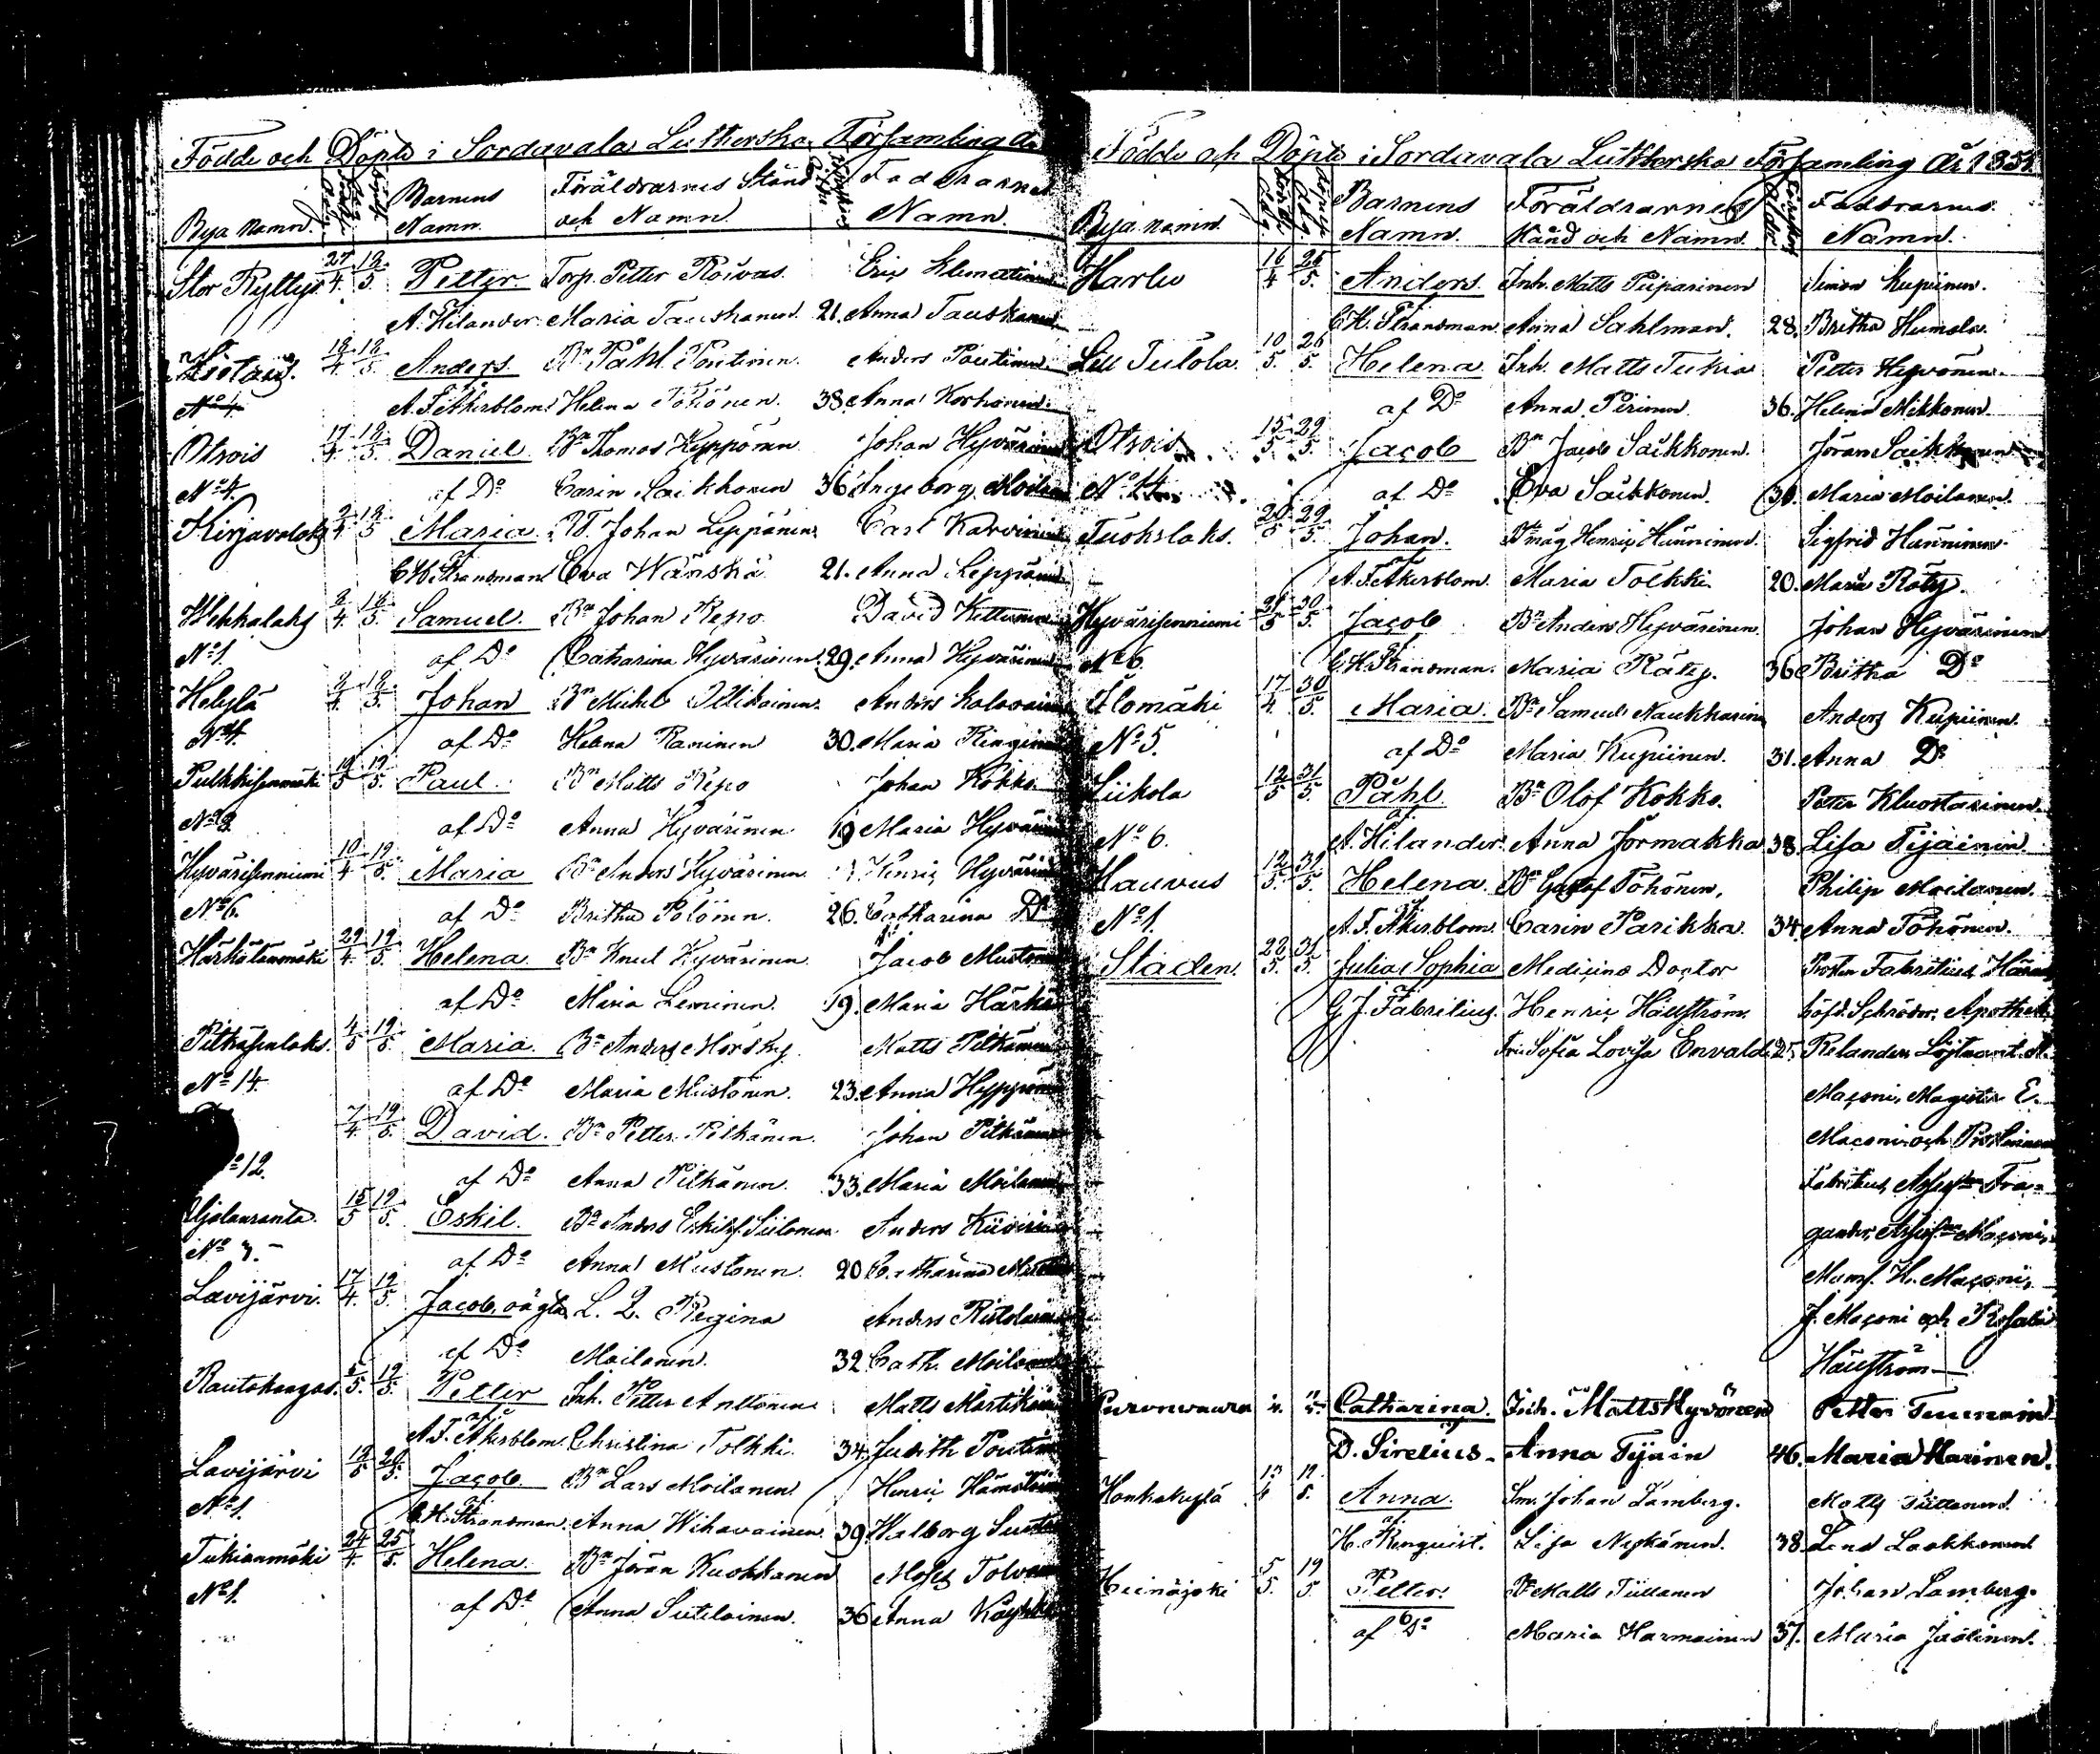 Födde och Döpte i Sordavala Lutherska Församling År
Bya namn. Barnens Namn. Föräldrarnes Stånd och Namn. Faddrarnes Namn.
Stor Ryttys 27/4 19/5 Petter Torp. Petter Roivas. Eric
A. Hilander. Maria Tauskanen. 21. Anna Tauskanen
18/4 18/5 Anders Bn Påhl Poutinen. Anders Poutinen
No 4 A. F. Åkerblom. Helena Töhönen. 38 Anna Korhonen.
Otsois 17/4 19/5 Daniel Bn Thomas Hyppönen Johan Hyvärinen
No 4. af Do Carin Saikkonen 36 Ingeborg
Kirjavalaks 2/4 19/5 Maria Johan Leppänen Carl Karvinen
C H Stransman Eva Wänskä 21. Anna Leppänen
Wekkalaks 2/4 18/5 Samuel. Bn Johan Repo David Kettunen
No 1. af Do Catharina Hyvärinen. 29. Anna Hyvärinen
Helylä 2/4 19/5 Johan Bn Michel Pellikainen. Anders
No 4. af Do Helena Raninen 30. Maria
Pulkkisenmäki 19/5 19/5 Paul. Bn Matts Repo Johan Kokko
af Do Anna Hyvärinen 19 Maria Hyvärinen
Hyvärisenniemi 10/4 19/5 Maria Bn Anders Hyvärinen Henric Hyvärinen
No 6. af Do Britha Polönen. 26. Catharina Do
Härkälänmäki 29/4 19/5 Helena Bn Knut Hyvärinen Jacob Mustonen
af Do Maria Leminen. 19. Maria
Pitkäsenlaks. 4/5 19/5 Maria. Bn Anders Matts Pitkänen
No 14 af Do Maria Mustonen. 23. Anna Hyppönen
7/4 19/5 David. Bn Petter Pitkänen. Johan Pitkänen
No 12. af Do Anna Pitkänen. 33. Maria Moilanen
15/5 19/5 Eskil. Bn Anders Eskilsf. Siitonen Anders
No 3. af Do Anna Mustonen 20 Catharina
Lavijärvi. 17/4 19/5 Jacob, oägta L. Q. Regina Anders Ristolainen
af Do Moilanen. 32 Cath. Moilanen
Rautakangas. 5/5 19/5 Petter Inh. Petter Anttonen Matts Martikainen
af A. F. Åkerblom. Christina Tolkki. 34. Judith
Lavijärvi 19/5 20/5 Jacob. Bn Lars Moilanen Henric Hämäläinen
No 1. af C. H. Stransman. Anna Wihavainen 39. Walborg
Tukianmäki 24/4 25/5 Helena. Bn Jöran Kuokkanen Moses Tolvanen
No 1. af Do Anna Sutelainen. 36 Anna
Födde och Döpte i Sordavala Lutherska Församling År 185
Bya namn. Barnens Namn. Föräldrarnes Stånd och Namn. Faddrarnes Namn.
Harlu 16/4 26/5 Anders Inh. Matts Piiparinen Simon Kupiinen.
C H. Stransman. Anna Sahlman. 28. Britha Humala.
Lill Tulola. 10/5 26/5 Helena Inh. Matts Tukia Petter Hyvönen.
af Do Anna Pirinen 36. Helena Mikkonen
Otsois 15/5 29/5 Jacob Bn Jacob Saikkonen. Jöran Saikkonen
No 14 af Do Eva Saikkonen. 30. Maria Moilanen.
Tuokslaks. 20/5 29/5 Johan. Henric Hänninen. Sigfrid Hänninen.
af A. F. Åkerblom. Maria Tolkki 20. Maria Räty.
Hyvärisenniemi 21/5 30/5 Jacob Bn Anders Hyvärinen. Johan Hyvärinen
No 6. af C. H. Stransman. Maria Räty. 36 Britha Do
Ilomäki 17/4 30/5 Maria. Bn Samuel Naukkarinen Anders Kupiinen.
No 5. af Do Maria Kupiinen. 31. Anna Do
Liikola 12/5 31/5 Påhl Bn Olof Kokko. Petter Kluostarinen.
No 6. af A. Hilander. Anna Jormakka 38. Lisa Tijainin.
Kauvus 12/5 31/5 Helena. Bn Gustaf Töhönen, Philip Moilanen.
No 1. af A. F. Åkerblom. Carin Parikka 34. Anna Töhönen.
Staden. 22/5 31/5 Julia Sophia Medicine Doctor Prosten Fabritius,
af G. J. Fabritius. Henric Häusström, höfd. Schröder, Apothek.
Fru Sofia Lovisa Envald. 25. Relander, Löjtnant
Maconi, Magister E.
Maconi och Prostinnan
Fabritius,
gander, Maconi,
Mamf. H. Maconi,
J. Maconi och Rosalie
Häusström
Catharina. Inh. Matts Hyvönen Petter
af D. Sirelius. Anna Tijain 46. Maria Karinen.
Honkakylä Anna. Johan Lamberg. Matts Tiittanen.
af H. Renquist. Lisa Neskänen. 38. Lena Laakkonen
Heinäjoki 5/5 19/5 Petter. Matts Tiittanen Johan Lamberg.
af Do Maria Harmainen 37. Maria